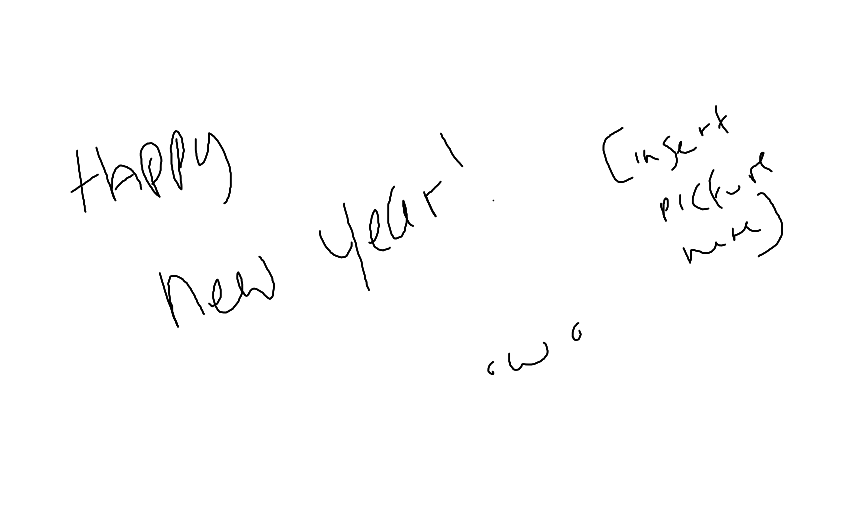 Happy
new year!
[insert
picture
here]
.w o